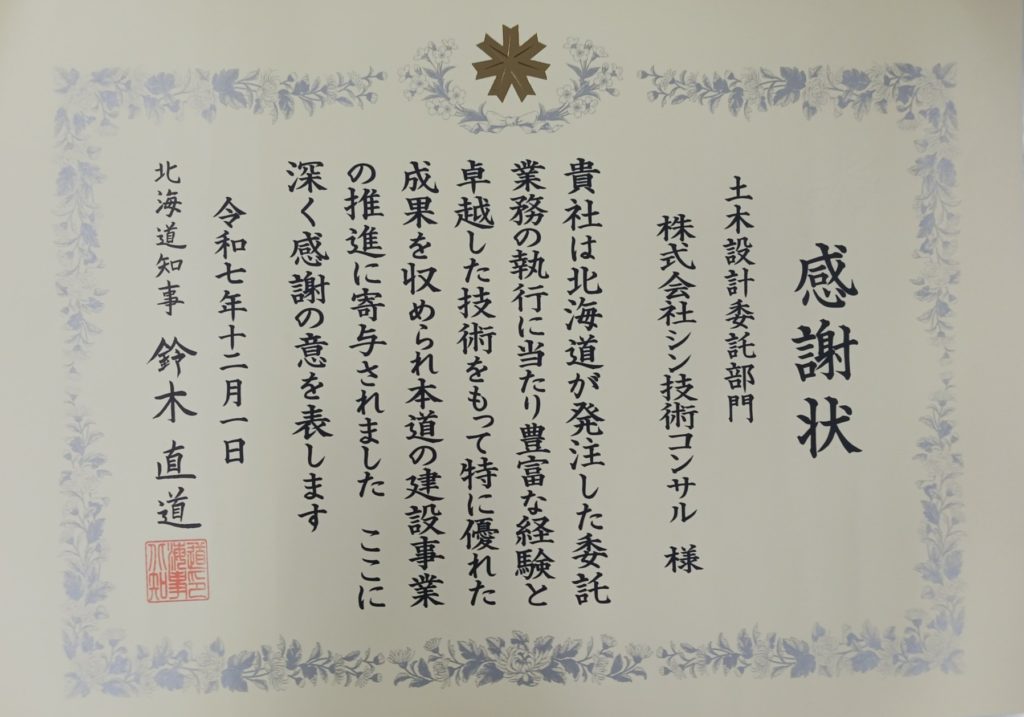 感謝状
土木設計委託部門
株式会社シン技術コンサル 様
貴社は北海道が発注した委託
業務の執行に当たり豊富な経験と
卓越した技術をもって特に優れた
成果を収められ本道の建設事業
の推進に寄与されました ここに
深く感謝の意を表します
令和七年十二月一日
北海道知事 鈴木直道
北海道知事印